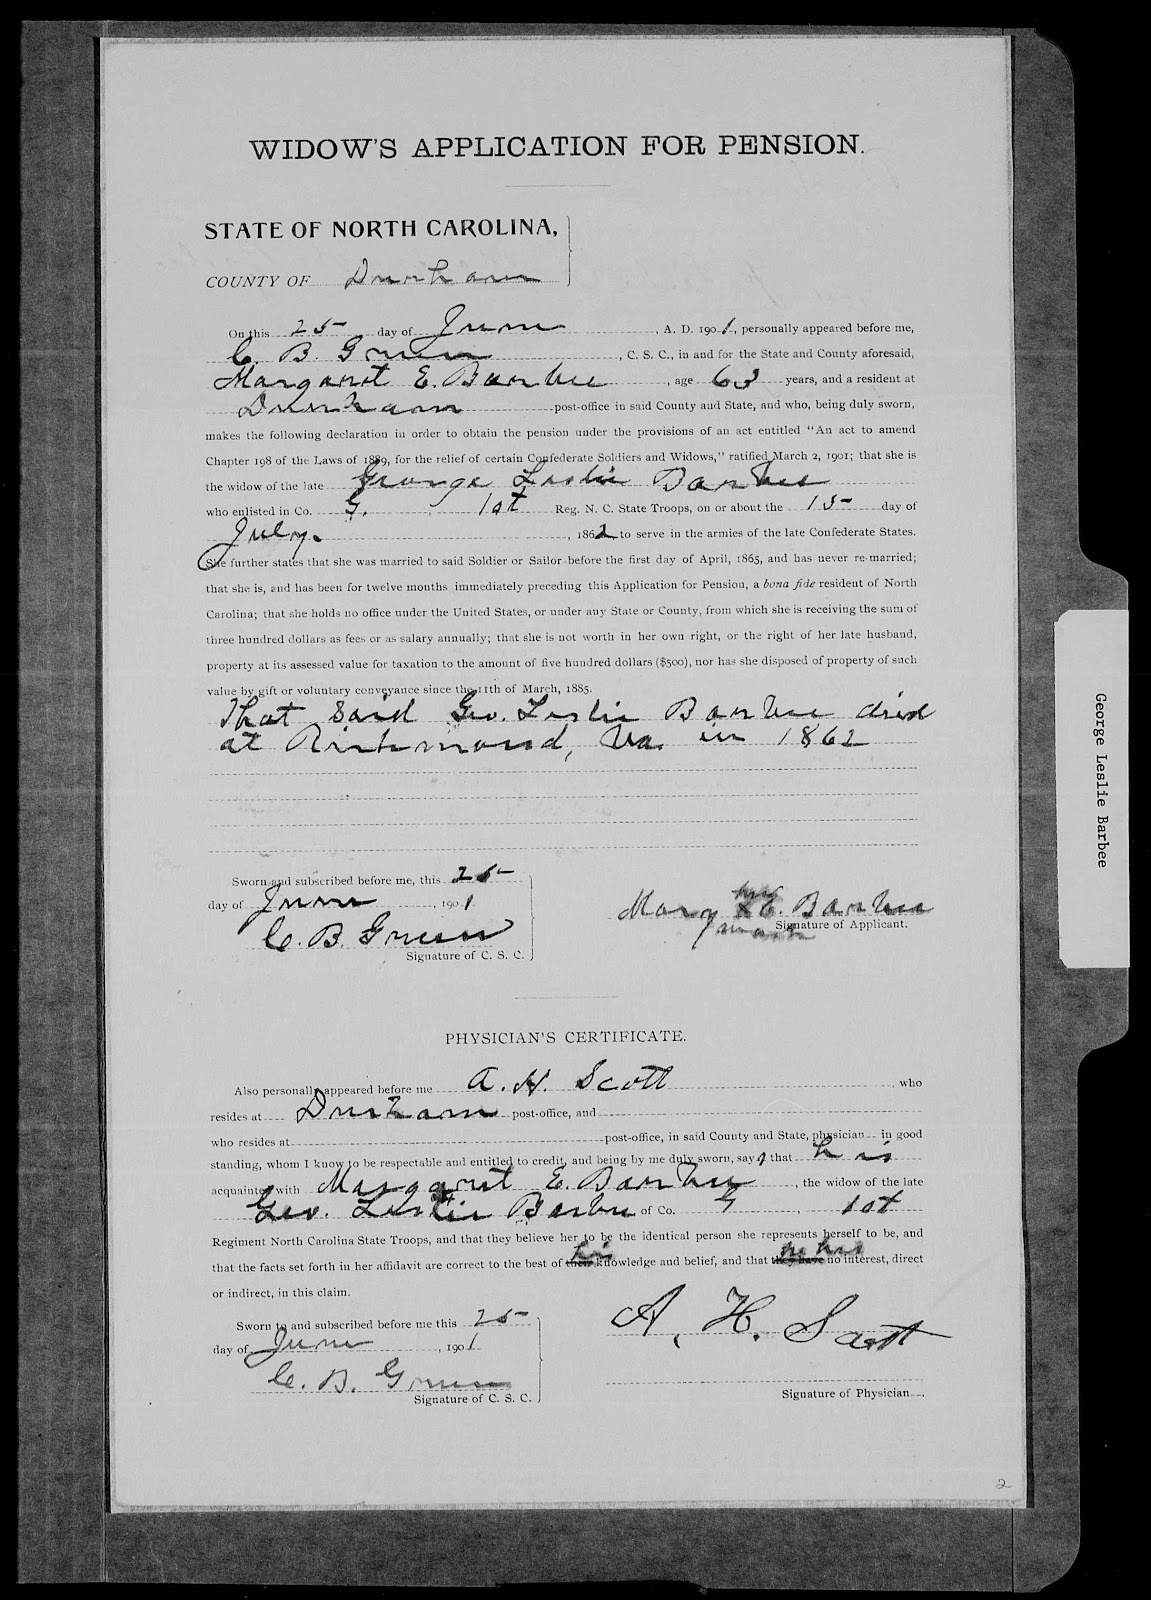 WIDOW'S APPLICATION FOR PENSION.
STATE OF NORTH CAROLINA,
COUNTY OF Durham
On this 25 day of June, A. D. 1901, personally appeared before me,
C. B. Green, C. S. C., in and for the State and County aforesaid,
Margaret E. Barbee, age 63 years, and a resident at
Durham post-office in said County and State, and who, being duly sworn,
makes the following declaration in order to obtain the pension under the provisions of an act entitled "An act to amend
Chapter 198 of the Laws of 1889, for the relief of certain Confederate Soldiers and Widows," ratified March 2, 1901; that she is
the widow of the late George Leslie Barbee
who enlisted in Co. G. 1st Reg. N. C. State Troops, on or about the 15 day of
July, 1862 to serve in the armies of the late Confederate States.
She further states that she was married to said Soldier or Sailor before the first day of April, 1865, and has never re-married;
that she is, and has been for twelve months immediately preceding this Application for Pension, a bona fide resident of North
Carolina; that she holds no office under the United States, or under any State or County, from which she is receiving the sum of
three hundred dollars as fees or as salary annually; that she is not worth in her own right, or the right of her late husband,
property at its assessed value for taxation to the amount of five hundred dollars ($500), nor has she disposed of property of such
value by gift or voluntary conveyance since the 11th of March, 1885.
That said Geo. Leslie Barbee died
at Richmond, Va. in 1862
Sworn and subscribed before me, this 25
day of June, 1901
C. B. Green
Signature of C. S. C.
her
Mary X E. Barbee
mark
Signature of Applicant.
PHYSICIAN'S CERTIFICATE.
Also personally appeared before me A. H. Scott, who
resides at Durham post-office, and
who resides at post-office, in said County and State, physician in good
standing, whom I know to be respectable and entitled to credit, and being by me duly sworn, says that he is
acquainted with Margaret E. Barbee, the widow of the late
Geo. Leslie Barbee of Co. G, 1st
Regiment North Carolina State Troops, and that they believe her to be the identical person she represents herself to be, and
that the facts set forth in her affidavit are correct to the best of their his knowledge and belief, and that they have he has no interest, direct
or indirect, in this claim.
Sworn to and subscribed before me this 25
day of June, 1901
C. B. Green
Signature of C. S. C.
A. H. Scott
Signature of Physician
George Leslie Barbee
2